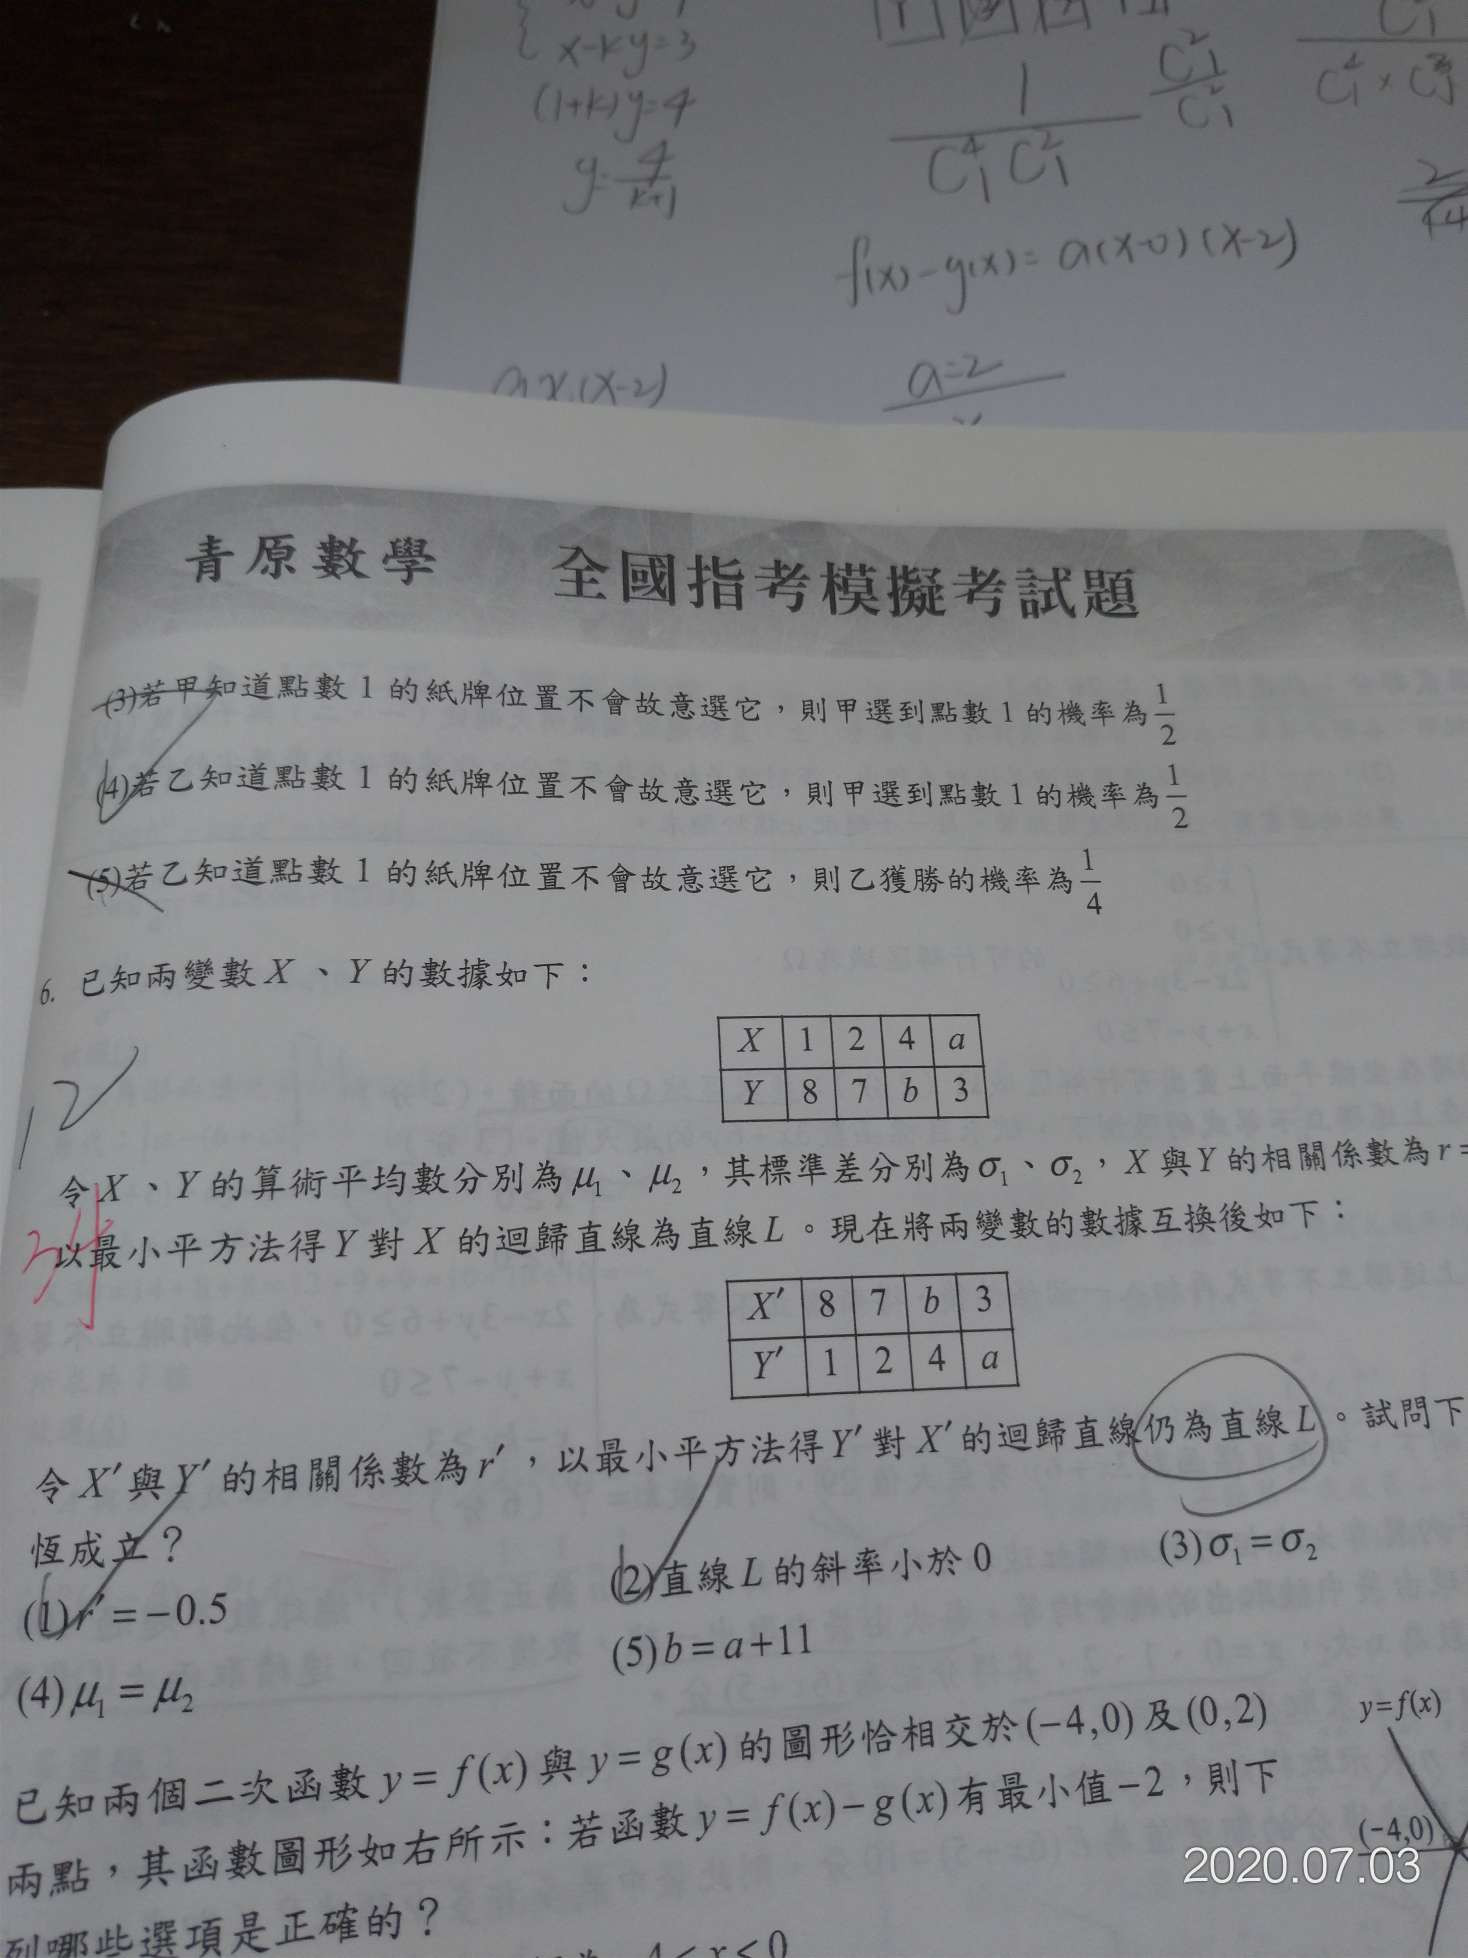 x-ky=3
(1+k)y=4
y=4/k+1
1/C₁⁴C₁²
C₁²/C₁²
f(x)-g(x)=a(x-0)(x-2)
ax(x-2)
a=2
青原數學 全國指考模擬考試題
(3)若甲知道點數1的紙牌位置不會故意選它，則甲選到點數1的機率為1/2
(4)若乙知道點數1的紙牌位置不會故意選它，則甲選到點數1的機率為1/2
(5)若乙知道點數1的紙牌位置不會故意選它，則乙獲勝的機率為1/4
6. 已知兩變數X、Y的數據如下：
X 1 2 4 a
Y 8 7 b 3
12
令X、Y的算術平均數分別為μ₁、μ₂，其標準差分別為σ₁、σ₂，X與Y的相關係數為r=
以最小平方法得Y對X的迴歸直線為直線L。現在將兩變數的數據互換後如下：
X′ 8 7 b 3
Y′ 1 2 4 a
令X′與Y′的相關係數為r′，以最小平方法得Y′對X′的迴歸直線仍為直線L。試問下
恆成立？
(1)r′=-0.5 (2)直線L的斜率小於0 (3)σ₁=σ₂
(4)μ₁=μ₂ (5)b=a+11
已知兩個二次函數y=f(x)與y=g(x)的圖形恰相交於(-4,0)及(0,2)
兩點，其函數圖形如右所示：若函數y=f(x)-g(x)有最小值-2，則下
列哪些選項是正確的？
y=f(x)
(-4,0)
-4<x<0
2020.07.03